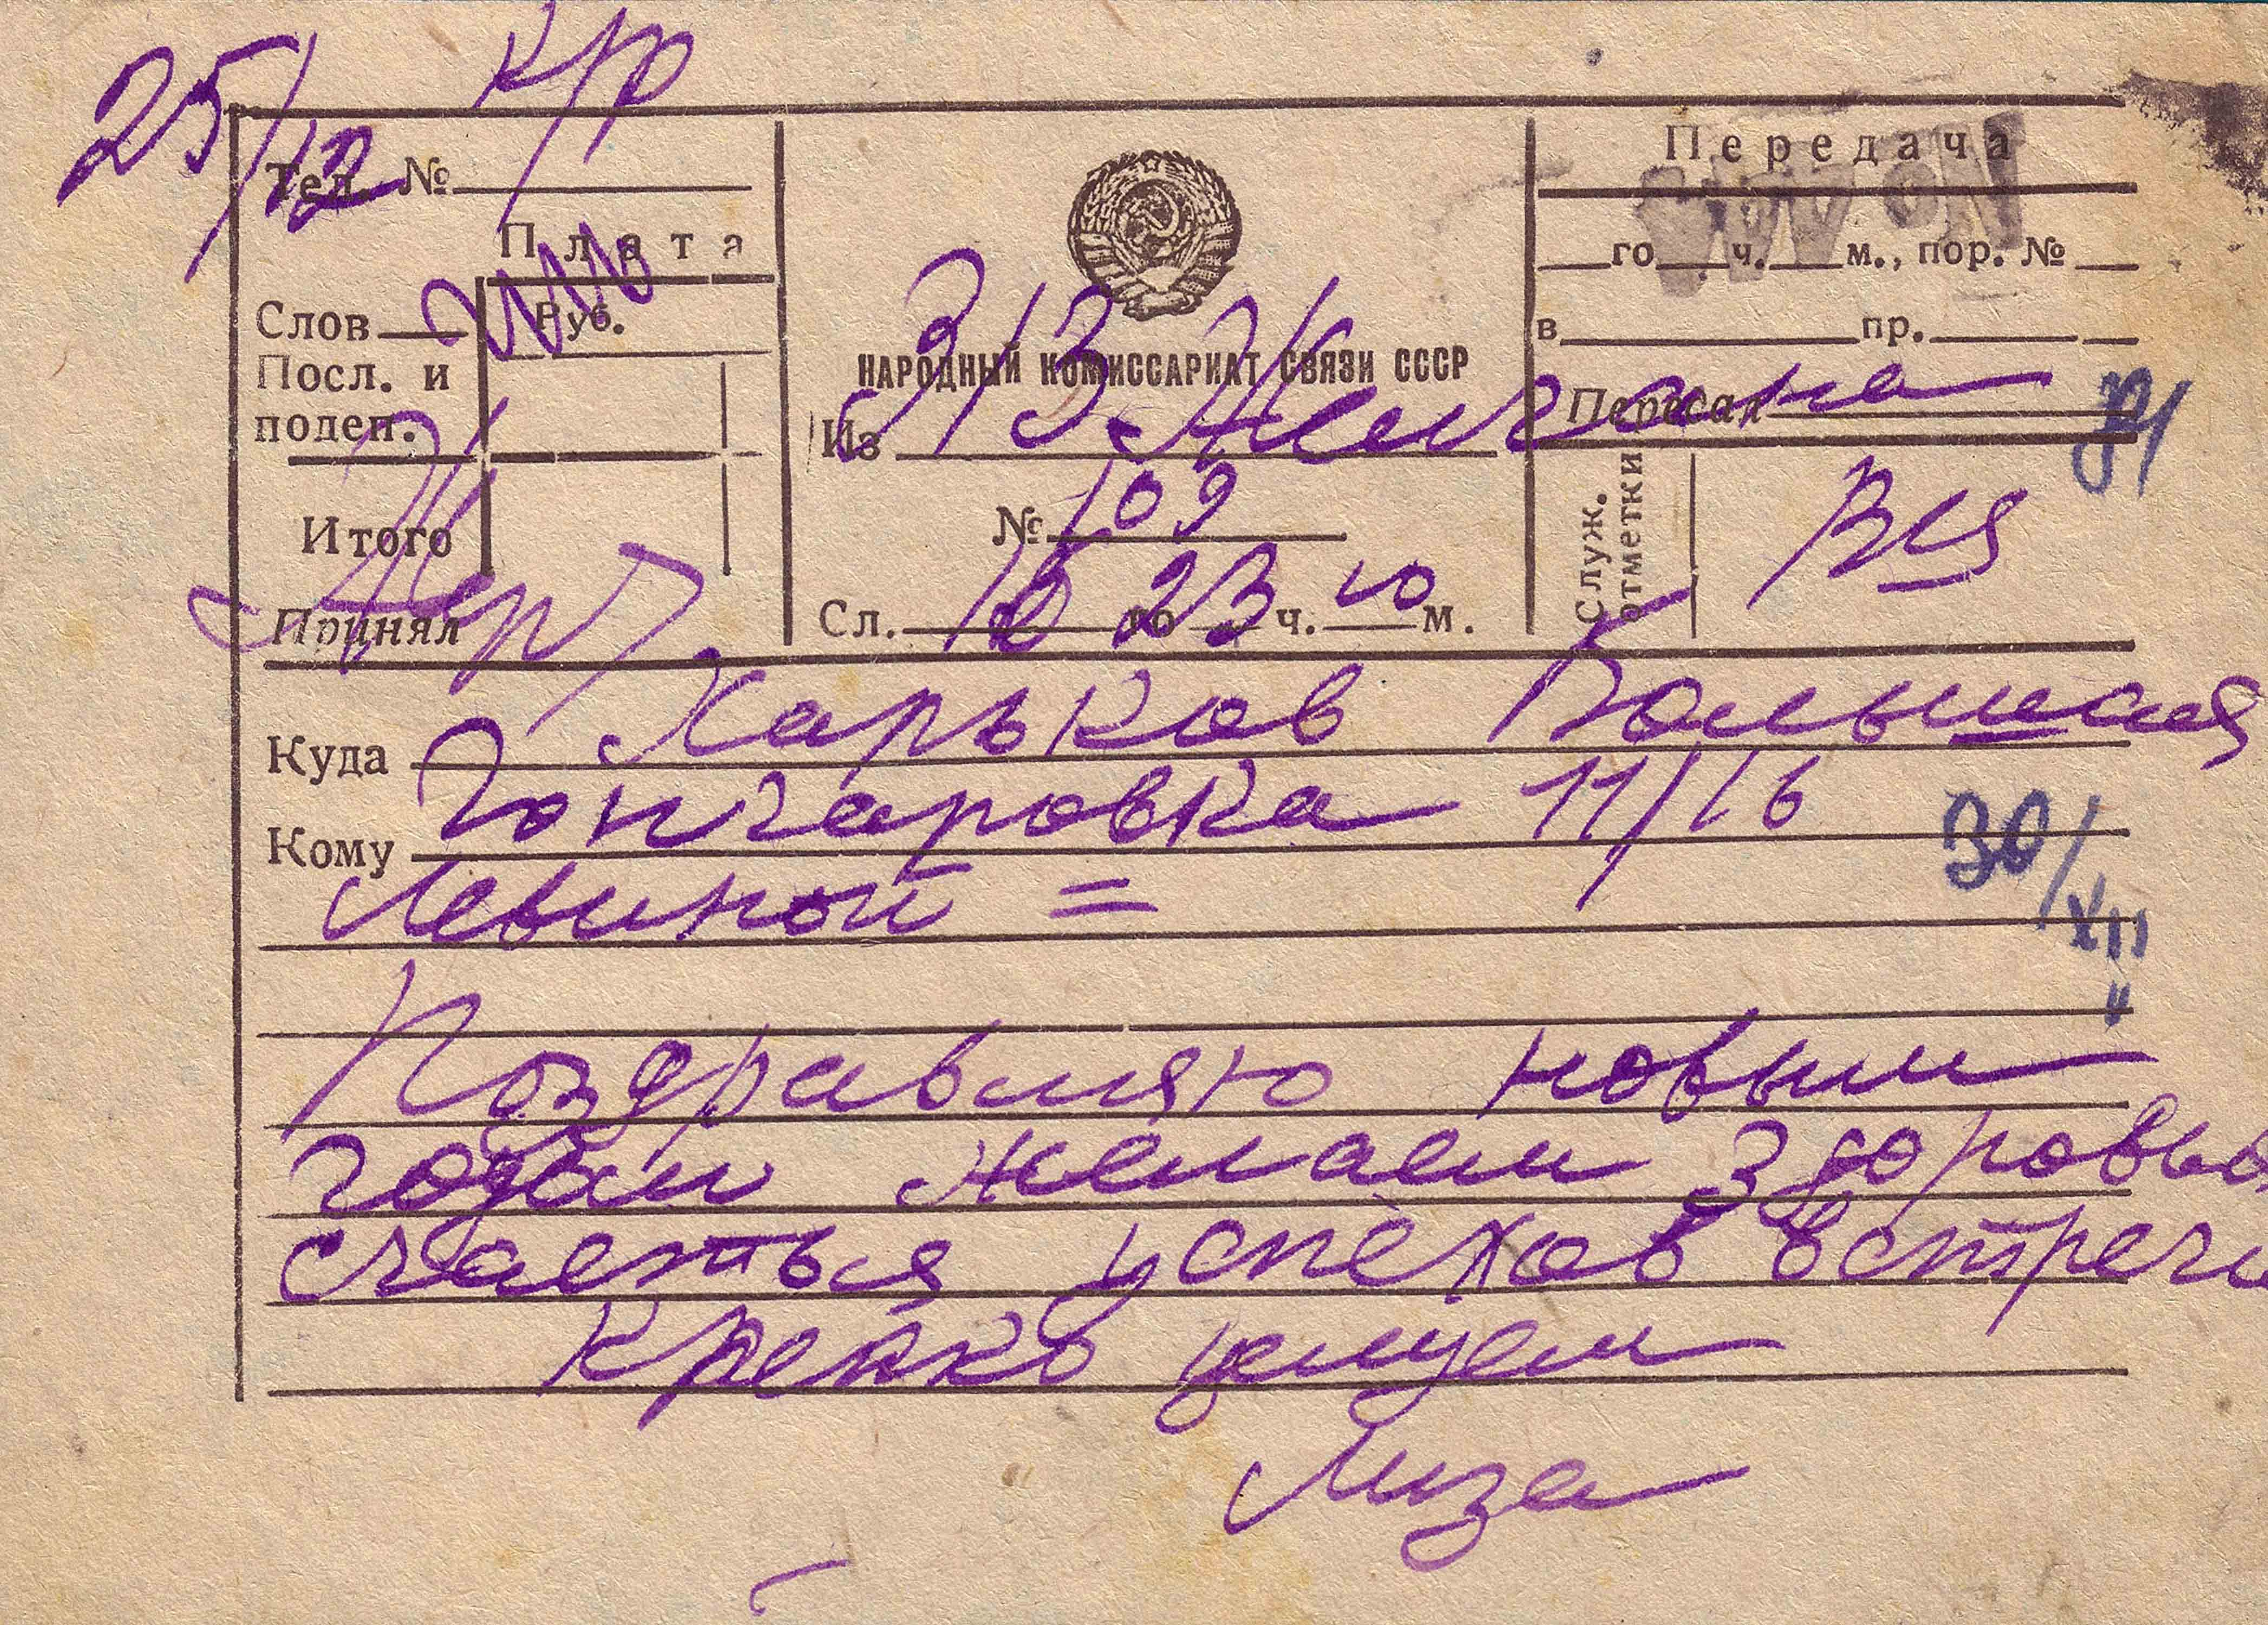 25/12
Тел. №
Плата
Слов
Руб.
Посл. и
подеп.
Итого
Принял
НАРОДНЫЙ КОМИССАРИАТ СВЯЗИ СССР
Из 313
№ 109
Сл. 16 го 23 ч. 10 м.
Передача
го ч. м., пор. №
в пр.
Передал
Служ.
отметки
Куда Харьков Большая
Гончаровка 11/16
Кому
Левиной =
30/XII
Поздравляю новым
годом желаем здоровья
счастья успехов встречи
Крепко целуем
Лиза